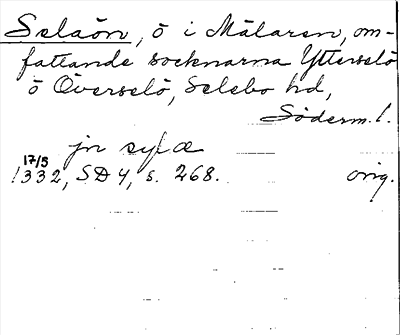 Selaön, ö i Mälaren, om-
fattande socknarna Ytterselö
o Överselö, Selebo hd,
Söderm. l.
jn sylæ
17/5
1332, SD 4, s. 268. orig.